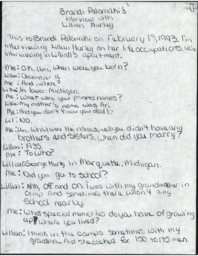 Brandi Palomaki's
interview with
Lillian Hurley
This is Brandi Palomaki on February 17, 1993, I'm
interviewing Lillian Hurley on her life occupations. We're
interviewing in Lillian's apartment.
Me: Oh, um, when were you born?
Lillian: December 16
Me: And where?
Lillian: In lower Michigan.
Me: What were your parents names?
Lillian: My mother's name was Avis.
Me: And you don't know your dad's?
Lil: No.
Me: Um, What were the names, well you didn't have any
brothers and sisters. When did you marry?
Lillian: 1935
Me: To who?
Lillian: George Hurley in Marquette, Michigan.
Me: Did you go to school?
Lillian: Well, off and on. I was with my grandmother in
camp and sometimes there wasn't any
school nearby.
Me: What special memories do you have of growing
up where you lived?
Lillian: I think, in the camps sometimes with my
grandma. And she cooked for 150 to 175 men.